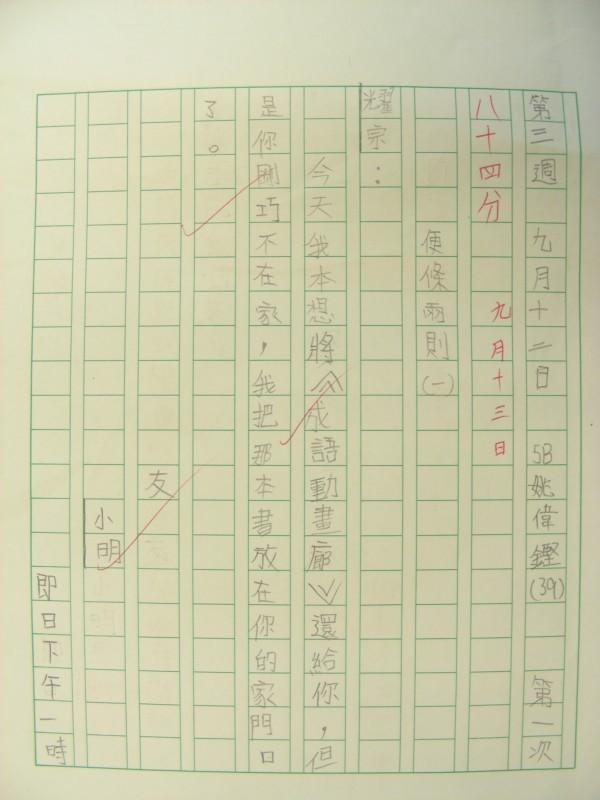 第三週 九月十二日 5B姚偉鏗(39) 第一次
八十四分 九月十三日
便條兩則(一)
耀宗：
今天我本想將《成語動畫廊》還給你，但
是你剛巧不在家，我把那本書放在你的家門口
了。
友
小明
即日下午一時